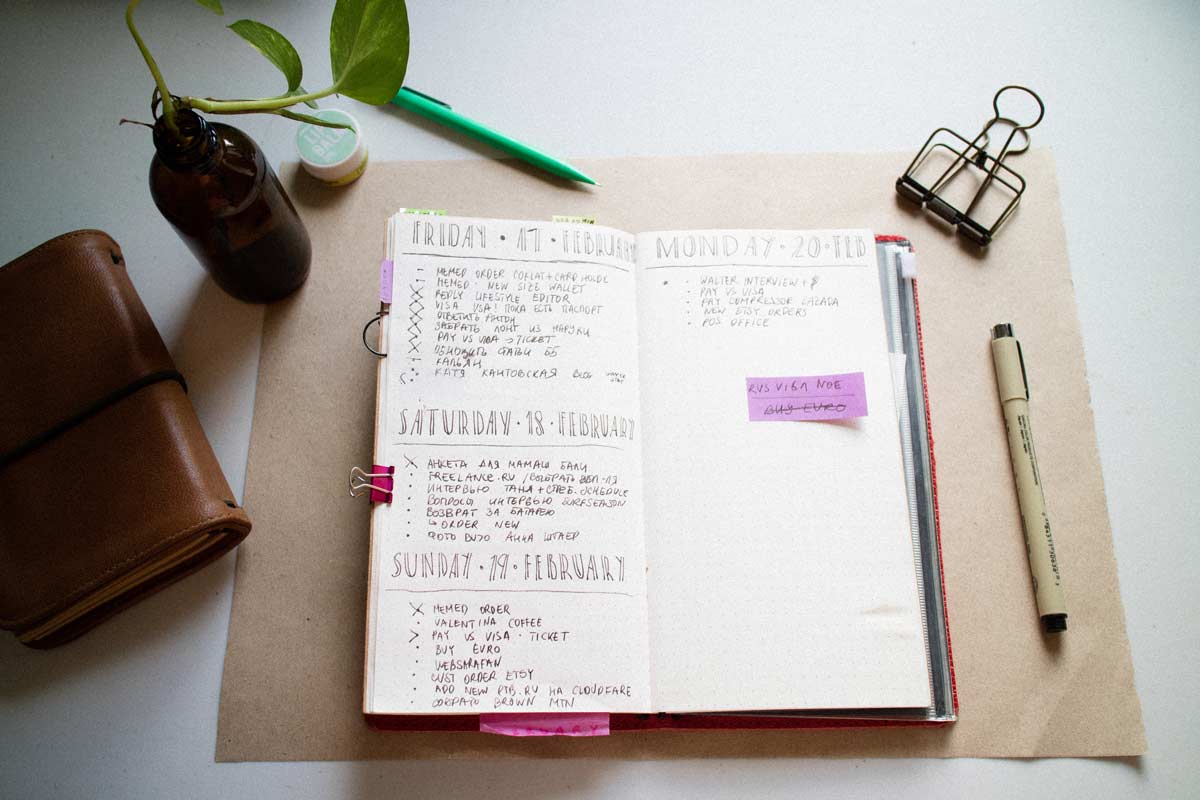 FRIDAY · 17 · FEBRUARY
MEMED ORDER CARD
MEMED · NEW SIZE WALLET
REPLY LIFESTYLE EDITOR
VISA USA! ПОКА ЕСТЬ ПАСПОРТ
ОТВЕТИТЬ
ЗАБРАТЬ ЛОНГ ИЗ НАРУКИ
PAY VS VISA → TICKET
ОБНОВИТЬ СТАТЬИ ББ
КАЛЬЯН
КАТЯ КАНТОВСКАЯ BLOG
SATURDAY · 18 · FEBRUARY
АНКЕТА ДЛЯ МАМАШ БАЛИ
FREELANCE.RU / ВЫБРАТЬ
ИНТЕРВЬЮ ТАНЯ + SCHEDULE
ВОПРОСЫ ИНТЕРВЬЮ SURFSEASON
ВОЗВРАТ ЗА БАТАРЕЮ
↳ ORDER NEW
ФОТО АННА ШТАЕР
SUNDAY · 19 · FEBRUARY
MEMED ORDER
VALENTINA COFFEE
PAY VS VISA · TICKET
BUY EURO
WEBSARAFAN
CUST ORDER ETSY
ADD NEW PTB.RU НА CLOUDFARE
BROWN MTN
MONDAY · 20 · FEB
WALTER INTERVIEW + $
PAY VS VISA
PAY COMPRESSOR LAZADA
NEW ETSY ORDERS
POS OFFICE
BUY EURO